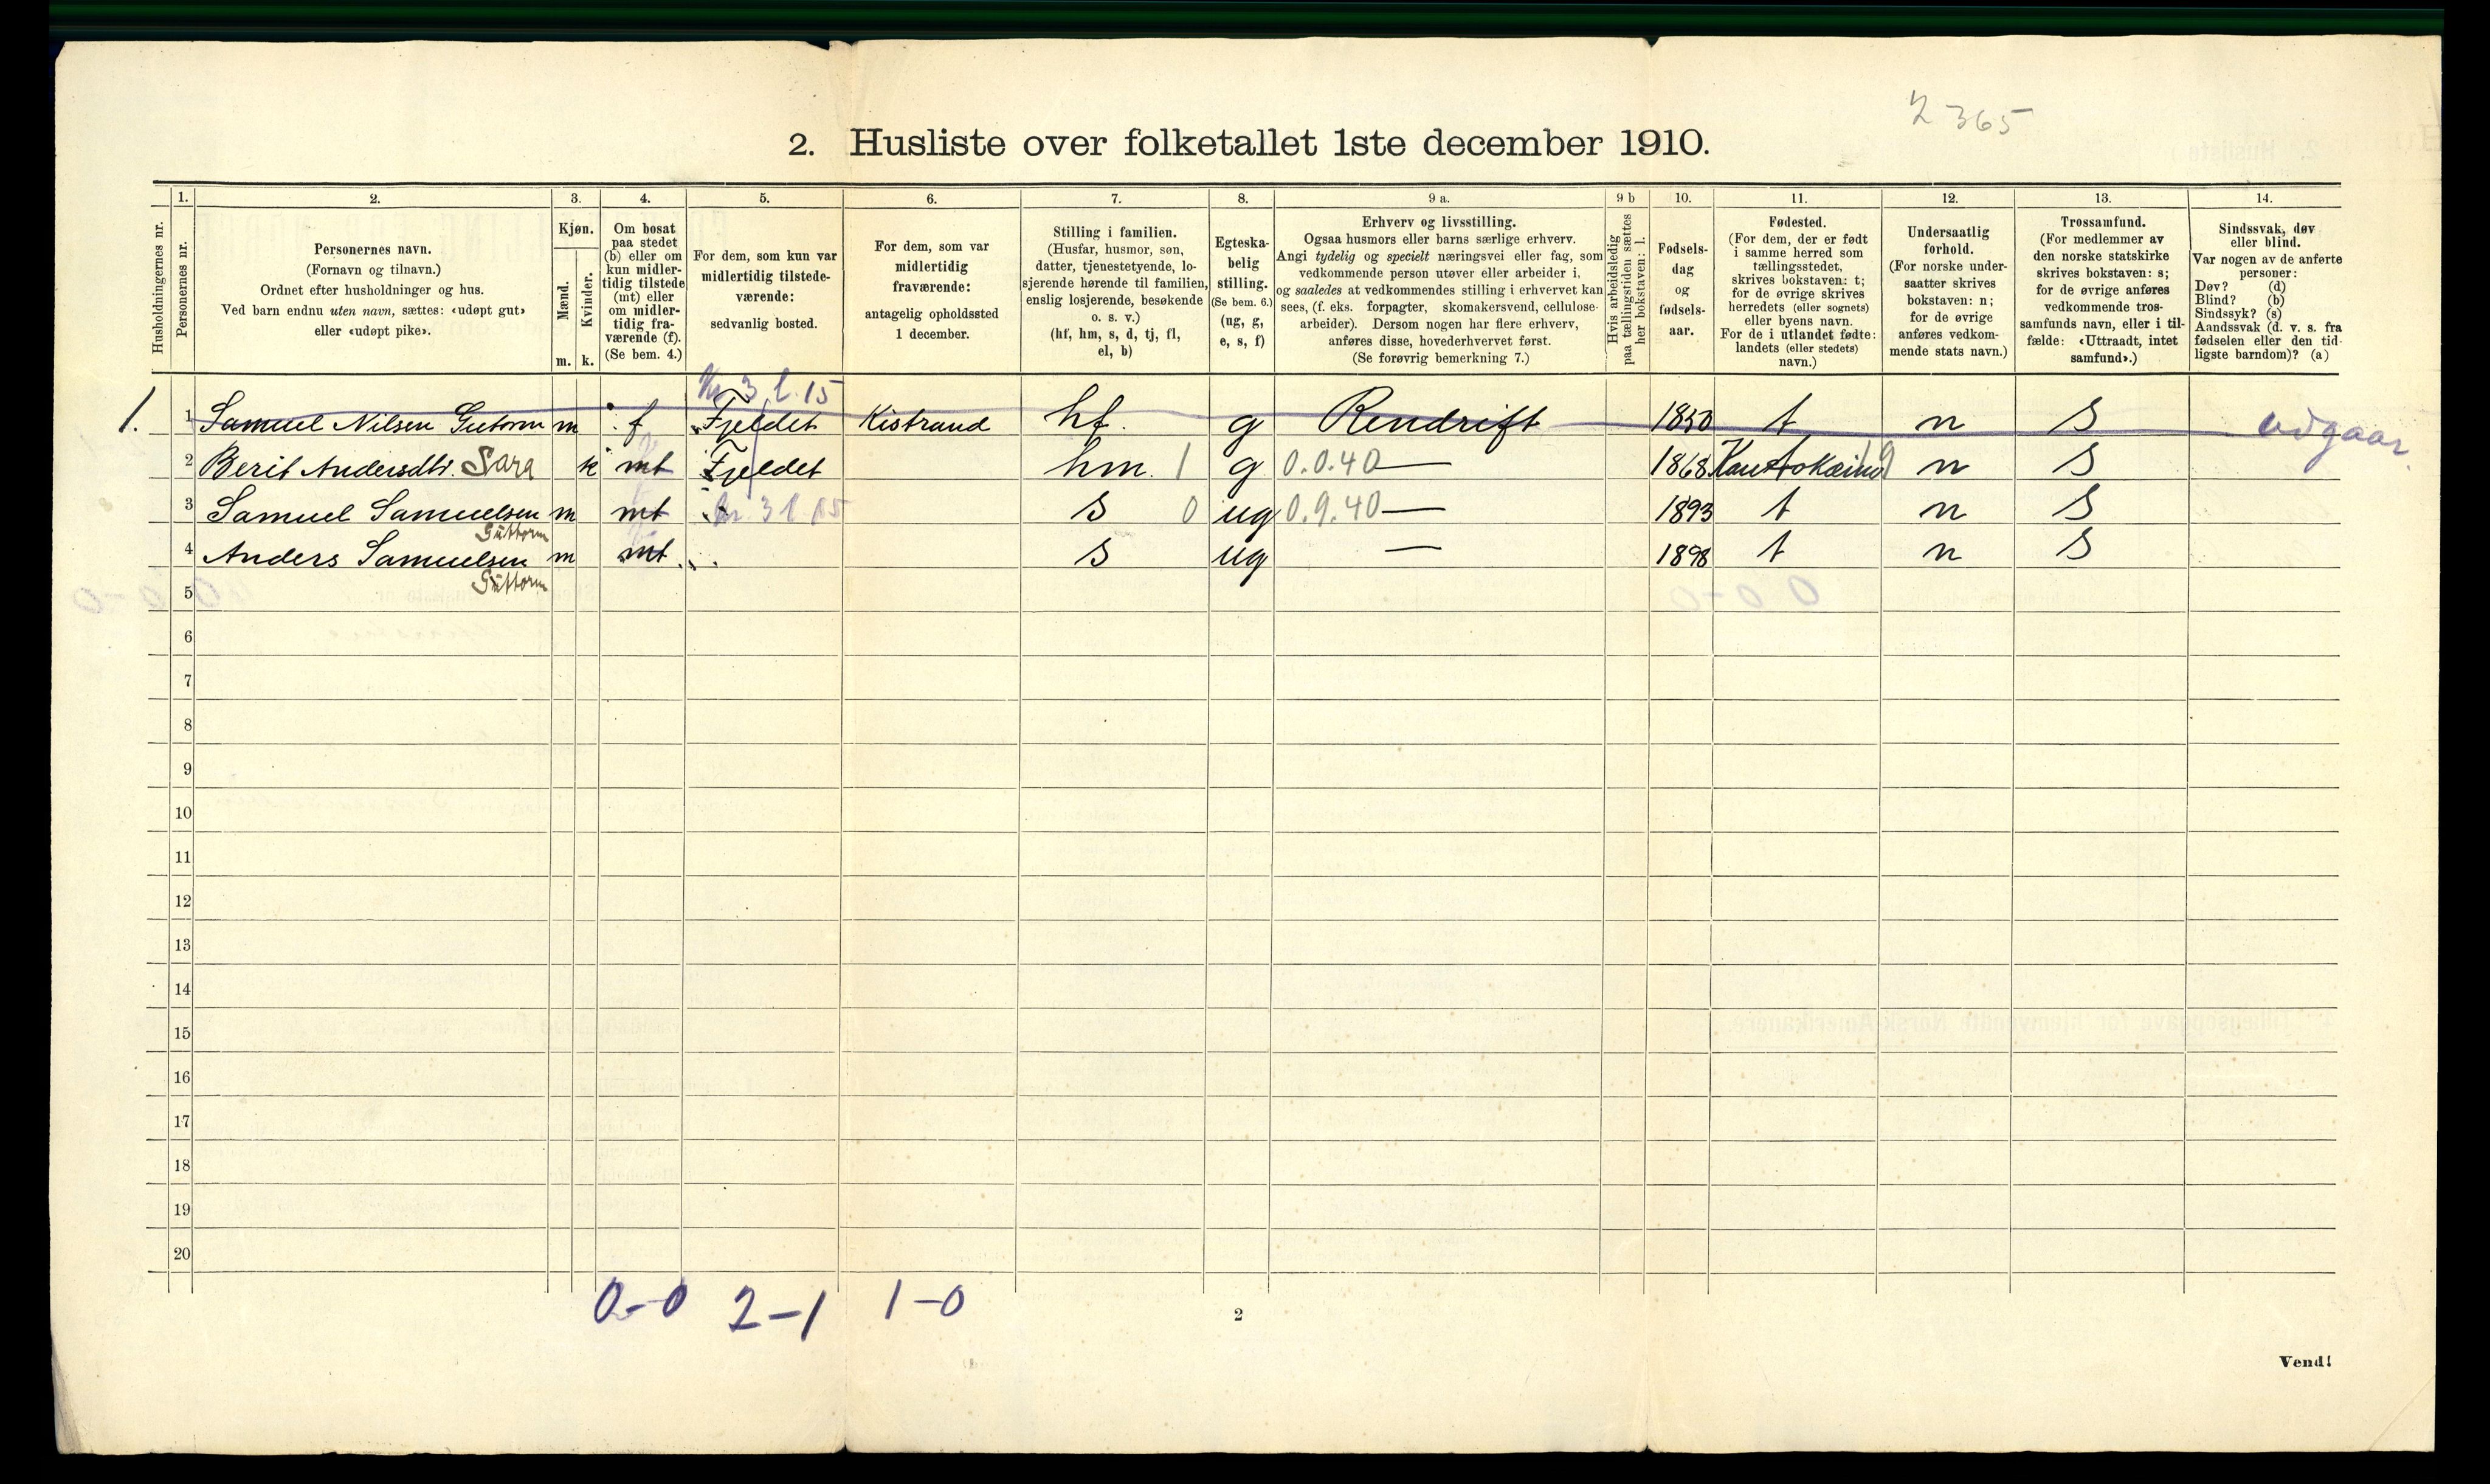 2 365
2. Husliste over folketallet 1ste december 1910.
Husholdningernes nr.
1.
Personernes nr.
2.
Personernes navn.
(Fornavn og tilnavn.)
Ordnet efter husholdninger og hus.
Ved barn endnu uten navn, sættes: «udøpt gut»
eller «udøpt pike».
3.
Kjøn.
Mænd.
m.
Kvinder.
k.
4.
Om bosat
paa stedet
(b) eller om
kun midler-
tidig tilstede
(mt) eller
om midler-
tidig fra-
værende (f).
(Se bem. 4.)
5.
For dem, som kun var
midlertidig tilstede-
værende:
sedvanlig bosted.
6.
For dem, som var
midlertidig
fraværende:
antagelig opholdssted
1 december.
7.
Stilling i familien.
(Husfar, husmor, søn,
datter, tjenestetyende, lo-
sjerende hørende til familien,
enslig losjerende, besøkende
o. s. v.)
(hf, hm, s, d, tj, fl,
el, b)
8.
Egteska-
belig
stilling.
(Se bem. 6.)
(ug, g,
e, s, f)
9 a.
Erhverv og livsstilling.
Ogsaa husmors eller barns særlige erhverv.
Angi tydelig og specielt næringsvei eller fag, som
vedkommende person utøver eller arbeider i,
og saaledes at vedkommendes stilling i erhvervet kan
sees, (f. eks. forpagter, skomakersvend, cellulose-
arbeider). Dersom nogen har flere erhverv,
anføres disse, hovederhvervet først.
(Se forøvrig bemerkning 7.)
9 b
Hvis arbeidsledig
paa tællingstiden sættes
her bokstaven: l.
10.
Fødsels-
dag
og
fødsels-
aar.
11.
Fødested.
(For dem, der er født
i samme herred som
tællingsstedet,
skrives bokstaven: t;
for de øvrige skrives
herredets (eller sognets)
eller byens navn.
For de i utlandet fødte:
landets (eller stedets)
navn.)
12.
Undersaatlig
forhold.
(For norske under-
saatter skrives
bokstaven: n;
for de øvrige
anføres vedkom-
mende stats navn.)
13.
Trossamfund.
(For medlemmer av
den norske statskirke
skrives bokstaven: s;
for de øvrige anføres
vedkommende tros-
samfunds navn, eller i til-
fælde: «Uttraadt, intet
samfund».)
14.
Sindssvak, døv
eller blind.
Var nogen av de anførte
personer:
Døv? (d)
Blind? (b)
Sindssyk? (s)
Aandssvak (d. v. s. fra
fødselen eller den tid-
ligste barndom)? (a)
1. 1 Samuel Nilsen Gutorm m f Fjeldet Kistrand hf. g Rendrift 1850 t n S udgaar.
2 Berit Andersdtr. Sara k mt Fjeldet hm. 1 g 0.0.40 — 1868 Kautokeino n S
3 Samuel Samuelsen m mt s 0 ug 0.9.40 — 1893 t n S
Guttorm
4 Anders Samuelsen m mt s ug — 1898 t n S
Guttorm
5
6
7
8
9
10
11
12
13
14
15
16
17
18
19
20
0-0 2-1 1-0
2
Vend!